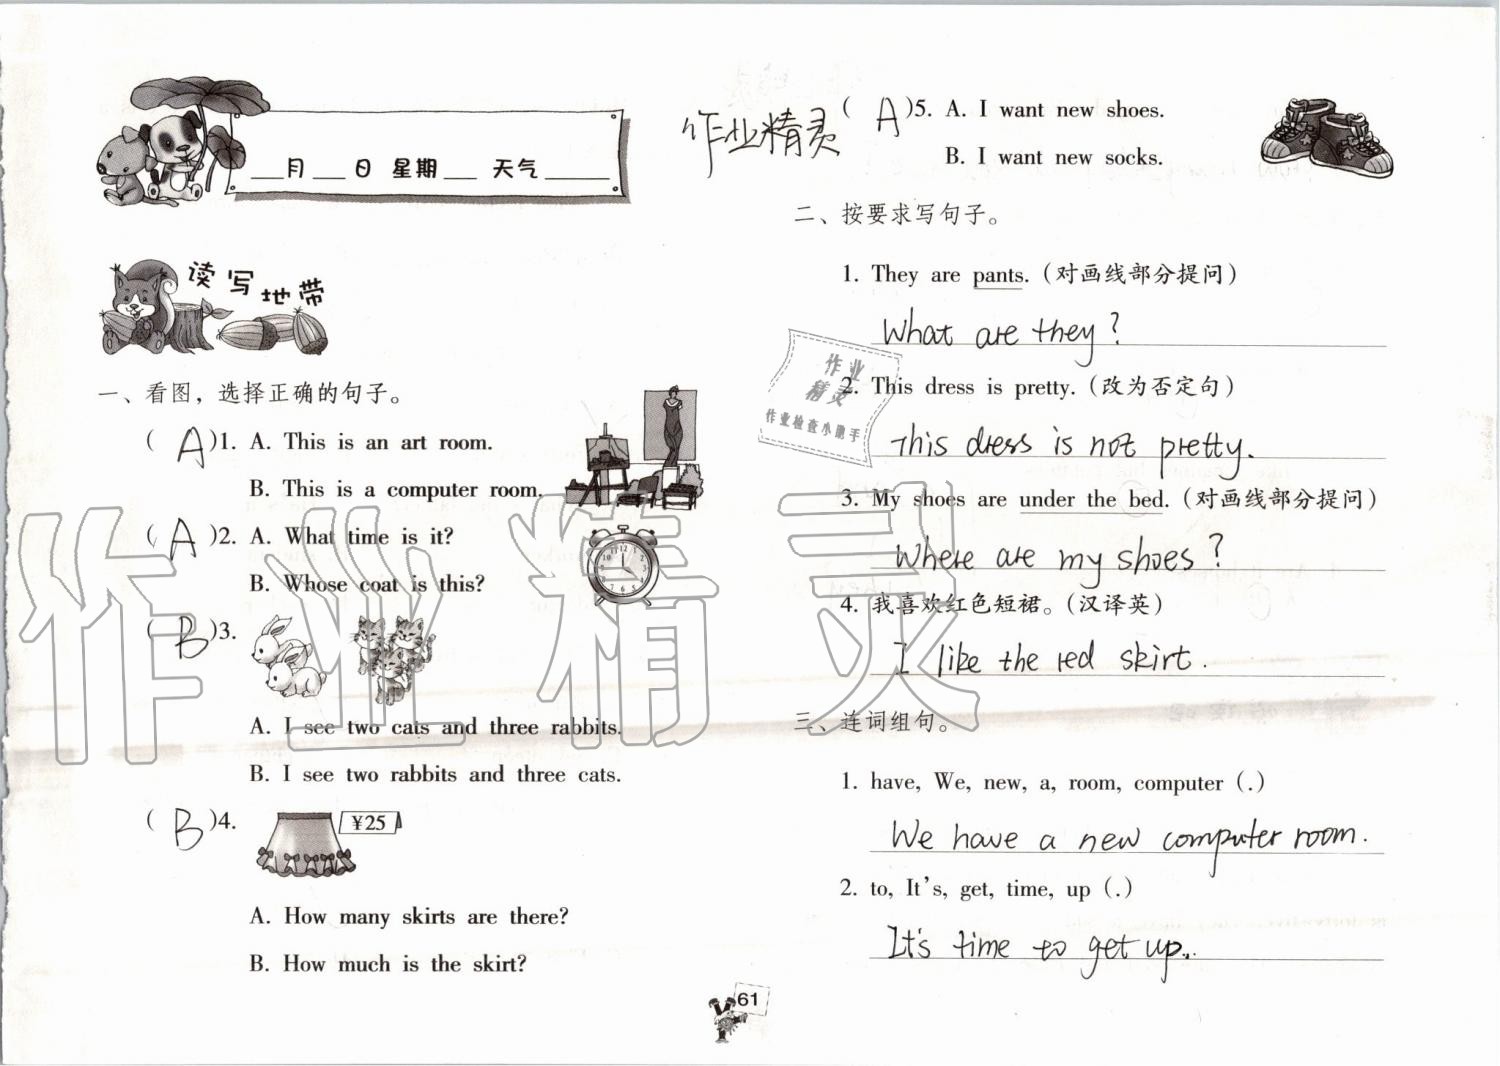 ___月___日 星期___ 天气______
读写地带
一、看图，选择正确的句子。
( A )1. A. This is an art room.
B. This is a computer room.
( A )2. A. What time is it?
B. Whose coat is this?
( B )3.
A. I see two cats and three rabbits.
B. I see two rabbits and three cats.
( B )4.
¥25
A. How many skirts are there?
B. How much is the skirt?
作业精灵
( A )5. A. I want new shoes.
B. I want new socks.
二、按要求写句子。
1. They are pants.（对画线部分提问）
What are they?
2. This dress is pretty.（改为否定句）
This dress is not pretty.
3. My shoes are under the bed.（对画线部分提问）
Where are my shoes?
4. 我喜欢红色短裙。（汉译英）
I like the red skirt.
三、连词组句。
1. have, We, new, a, room, computer (.)
We have a new computer room.
2. to, It's, get, time, up (.)
It's time to get up..
61
作业
精灵
作业检查小助手
作业精灵